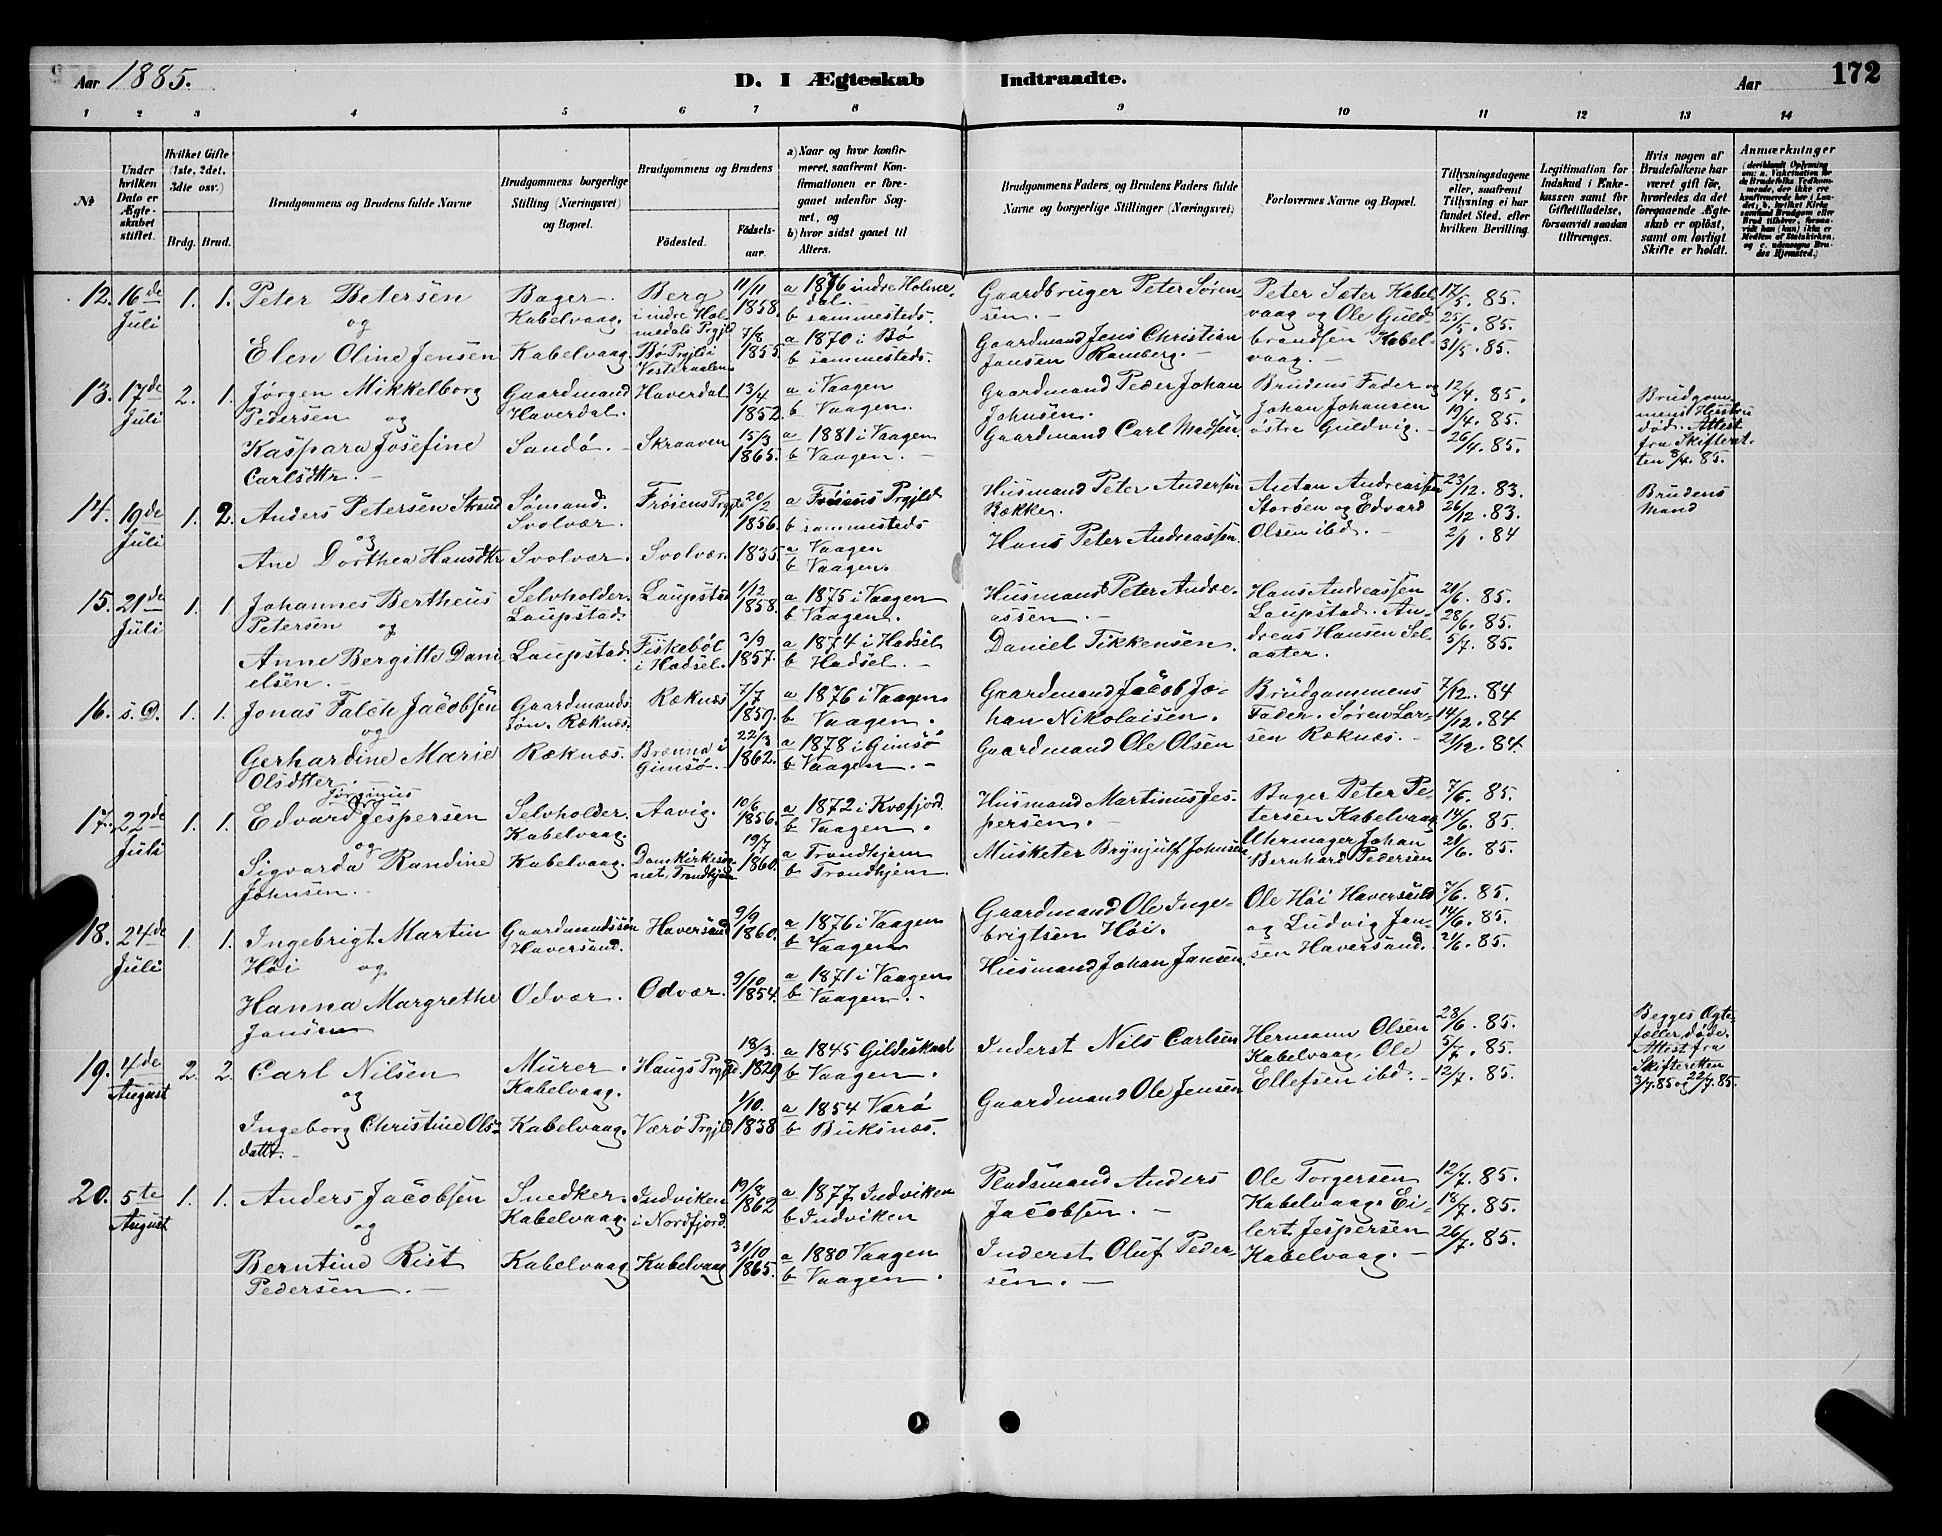 Aar 1885.
D. I Ægteskab Indtraadte.
Aar
172
1 2 3 4 5 6 7 8 9 10 11 12 13 14
№
Under hvilken Dato er Ægteskabet stiftet.
Hvilket Gifte (1ste, 2det, 3die osv.)
Brdg. Brud.
Brudgommens og Brudens fulde Navne
Brudgommens borgerlige Stilling (Næringsvei) og Bopæl.
Brudgommens og Brudens
Fødested.
Fødselsaar.
a) Naar og hvor konfirmeret, saafremt Konfirmationen er foregaaet udenfor Sognet, og
b) hvor sidst gaaet til Alters.
Brudgommens Faders og Brudens Faders fulde Navne og borgerlige Stillinger (Næringsvei)
Forlovernes Navne og Bopæl.
Tillysningsdagene eller, saafremt Tillysning ei har fundet Sted, efter hvilken Bevilling.
Legitimation for Indskud i Enkekassen samt for Giftetilladelse, forsaavidt saadan tiltrænges.
Hvis nogen af Brudefolkene har været gift før, hvorledes da det foregaaende Ægteskab er opløst, samt om lovligt Skifte er holdt.
Anmærkninger
12. 16de Juli 1. 1. Peter Petersen
og
Elen Oline Jensen
Bager. Kabelvaag.
Kabelvaag.
Berg i indre Holmedals Prgjld
Bø Prgjld i Vesteraalen
11/11 1858.
7/8 1855.
a 1876 indre Holmedal.
b sammesteds.
a 1870 i Bø
b sammesteds.
Gaardbruger Peter Sørensen.
Gaardmand Jens Christian Jansen Ramberg.
Peter Sæter Kabelvaag og Ole Guldbrandsen Kabelvaag.
17/5. 85.
25/5. 85.
31/5. 85.
13. 17de Juli 2. 1. Jørgen Mikkelborg
Pedersen og
Kaspara Josefine
Carlsdttr.
Gaardmand Haverdal.
Sandø.
Haverdal
Skraaven
13/4 1852.
15/3 1865.
a i Vaagen
b Vaagen.
a 1881 i Vaagen
b Vaagen.
Gaardmand Peder Johan Johnsen.
Gaardmand Carl Madsen.
Brudens Fader og
Johan Johansen
østre Guldvig.
12/4. 85.
19/4. 85.
26/4. 85.
Brudgommens Hustru
død. Attest
fra Skifteretten 8/4. 85.
14. 19de Juli 1. 2. Anders Petersen Strand
og
Ane Dorthea Hansdttr
Sømand. Svolvær.
Svolvær.
Frøiens Prgjld
Svolvær.
20/2 1856.
1835.
a Frøiens Prgjld
b sammesteds
a Vaagen
b Vaagen.
Husmand Peter Andersen Række.
Hans Peter Andreassen.
Antan Andreassen
Storøen og Edvard
Olsen ibd.
23/12. 83.
26/12. 83.
2/1. 84
Brudens Mand
15. 21de Juli 1. 1. Johannes Bertheus
Petersen og
Anne Bergitte Danielsen.
Selvholder. Laupstad.
Laupstad.
Laupstad
Fiskebøl i Hadsel.
1/12 1858.
3/9 1857.
a 1875 i Vaagen
b Vaagen.
a 1874 i Hadsel
b Hadsel.
Husmand Peter Andreassen.
Daniel Tikkensen.
Hans Andreassen
Laupstad. Andreas Hansen Selaater.
21/6. 85.
28/6. 85.
5/7. 85.
16. s. D. 1. 1. Jonas Falch Jacobsen
og
Gerhardine Marie
Olsdtter.
Gaardmands Søn. Røknæs.
Ræknæs.
Ræknæs
Brenna i Gimsø.
7/7 1859.
22/3 1862.
a 1876 i Vaagen
b Vaagen.
a 1878 i Gimsø
b Vaagen.
Gaardmand Jacob Johan Nikolaisen.
Gaardmand Ole Olsen
Brudgommens
Fader. Søren Larsen Ræknæs.
7/12. 84
14/12. 84
21/12. 84
17. 22de Juli 1. 1. Edvard Jørginus Jespersen
og
Sigvarda Randine
Johnsen.
Selvholder. Kabelvaag.
Kabelvaag.
Aavig.
Domkirkesognet, Trondhjem
10/6 1856.
19/7 1860.
a 1872 i Kvæfjord
b Vaagen.
a Trondhjem
b Trondhjem.
Husmand Martinus Jespersen.
Musketer Brynjulf Johnsen
Bager Peter Petersen Kabelvaag
Uhrmager Johan
Bernhard Pedersen
7/6. 85.
14/6. 85.
21/6. 85.
18. 24de Juli 1. 1. Ingebrigt Martin
Høi og
Hanna Margrethe
Jansen
Gaardmandssøn Haversand.
Odvær.
Haversand
Odvær.
9/9 1860.
9/10 1854.
a 1876 i Vaagen
b Vaagen
a 1871 i Vaagen
b Vaagen.
Gaardmand Ole Ingebrigtsen Høi.
Husmand Johan Jansen.
Ole Høi Haversand
og Ludvig Jansen Haversand.
7/6. 85.
14/6. 85.
21/6. 85.
19. 4de August 2. 2. Carl Nilsen
og
Ingeborg Christine Olsdattr.
Murer. Kabelvaag.
Kabelvaag.
Haugs Prgjld.
Værø Prgjld
18/3. 1829
1/10. 1838
a 1845 Gildeskaal
b Vaagen.
a 1854 Værø
b Buksnæs.
Inderst Nils Carlsen
Gaardmand Ole Jensen
Hermann Olsen
Kabelvaag, Ole
Ellefsen ibd.
28/6. 85.
5/7. 85.
12/7. 85.
Begges Ægtefæller døde.
Attest fra
Skifteretten
3/7. 85 og 22/7. 85.
20. 5te August 1. 1. Anders Jacobsen
og
Berntine Rist
Pedersen.
Snedker. Kabelvaag.
Kabelvaag
Indviken i Nordfjord.
Kabelvaag
19/8 1862
31/10 1865.
a 1877 Indviken
b Indviken
a 1880 Vaagen
b Vaagen.
Pladsmand Anders Jacobsen.
Inderst Oluf Pedersen.
Ole Torgersen
Kabelvaag. Eilert Jespersen
Kabelvaag.
12/7. 85.
18/7. 85.
26/7. 85.